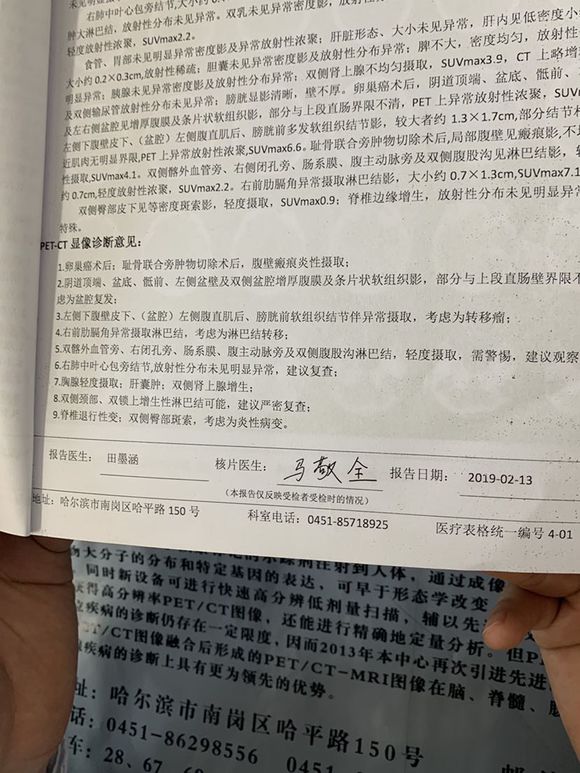 右肺中叶心包旁结节,大小约
肿大淋巴结，放射性分布未见异常。双乳未见异常密度影，放射
轻度放射性浓聚，SUVmax2.2。
食管、胃部未见明显异常密度影及异常放射性浓聚；肝脏形态、大小未见异常，肝内见低密度小
大小约 0.2×0.3cm,放射性稀疏；胆囊未见异常密度影及放射性分布异常；脾不大，密度均匀，放射性
明显异常；胰腺未见异常密度影及放射性分布异常；双侧肾上腺不均匀摄取，SUVmax3.9，CT 上略增
及双侧输尿管放射性分布未见异常；膀胱显影清晰，壁不厚。卵巢癌术后，阴道顶端、盆底、骶前、
及左右侧盆腔见增厚腹膜及条片状软组织影，部分与上段直肠界限不清，PET 上异常放射性浓聚，SUV
左侧下腹壁皮下、（盆腔）左侧腹直肌后、膀胱前多发软组织结节影，较大者约 1.3×1.7cm,部分结节
近肌肉无明显界限,PET 上异常放射性浓聚,SUVmax6.6。耻骨联合旁肿物切除术后,局部腹壁见瘢痕影,不
性摄取,SUVmax4.1。双侧髂外血管旁、右侧闭孔旁、肠系膜、腹主动脉旁及双侧腹股沟见淋巴结影，
约 0.7cm,轻度放射性浓聚，SUVmax2.2。右前肋膈角异常摄取淋巴结影，大小约 0.7×1.3cm,SUVmax7.1
双侧臀部皮下见等密度斑索影，轻度摄取，SUVmax0.9；脊椎边缘增生，放射性分布未见明显异常
特殊。
PET-CT 显像诊断意见：
1.卵巢癌术后；耻骨联合旁肿物切除术后，腹壁瘢痕炎性摄取；
2.阴道顶端、盆底、骶前、左侧盆壁及双侧盆腔增厚腹膜及条片状软组织影，部分与上段直肠壁界限不
虑为盆腔复发；
3.左侧下腹壁皮下、（盆腔）左侧腹直肌后、膀胱前软组织结节伴异常摄取，考虑为转移瘤；
4.右前肋膈角异常摄取淋巴结，考虑为淋巴结转移；
5.双髂外血管旁、右闭孔旁、肠系膜、腹主动脉旁及双侧腹股沟淋巴结，轻度摄取，需警惕，建议观察
6.右肺中叶心包旁结节,放射性分布未见明显异常，建议复查；
7.胸腺轻度摄取；肝囊肿；双侧肾上腺增生；
8.双侧颈部、双锁上增生性淋巴结可能，建议严密复查；
9.脊椎退行性变；双侧臀部斑索，考虑为炎性病变。
报告医生： 田墨涵 核片医生： 马敬全 报告日期： 2019-02-13
（本报告仅反映受检者受检时的情况）
地址：哈尔滨市南岗区哈平路 150 号 科室电话：0451-85718925 医疗表格统一编号 4-01
物大分子的分布和特定基因的表达，可早于形态学改变
同时新设备可进行快速高分辨低剂量扫描，辅以先
获得高分辨率PET/CT图像，还能进行精确地定量分析。但P
疾病的诊断仍存在一定限度，因而2013年本中心再次引进先进
CT/CT图像融合后形成的PET/CT-MRI图像在脑、脊髓、
疾病的诊断上具有更为领先的优势。
址：哈尔滨市南岗区哈平路150号
话：0451-86298556 0451
车：28、67